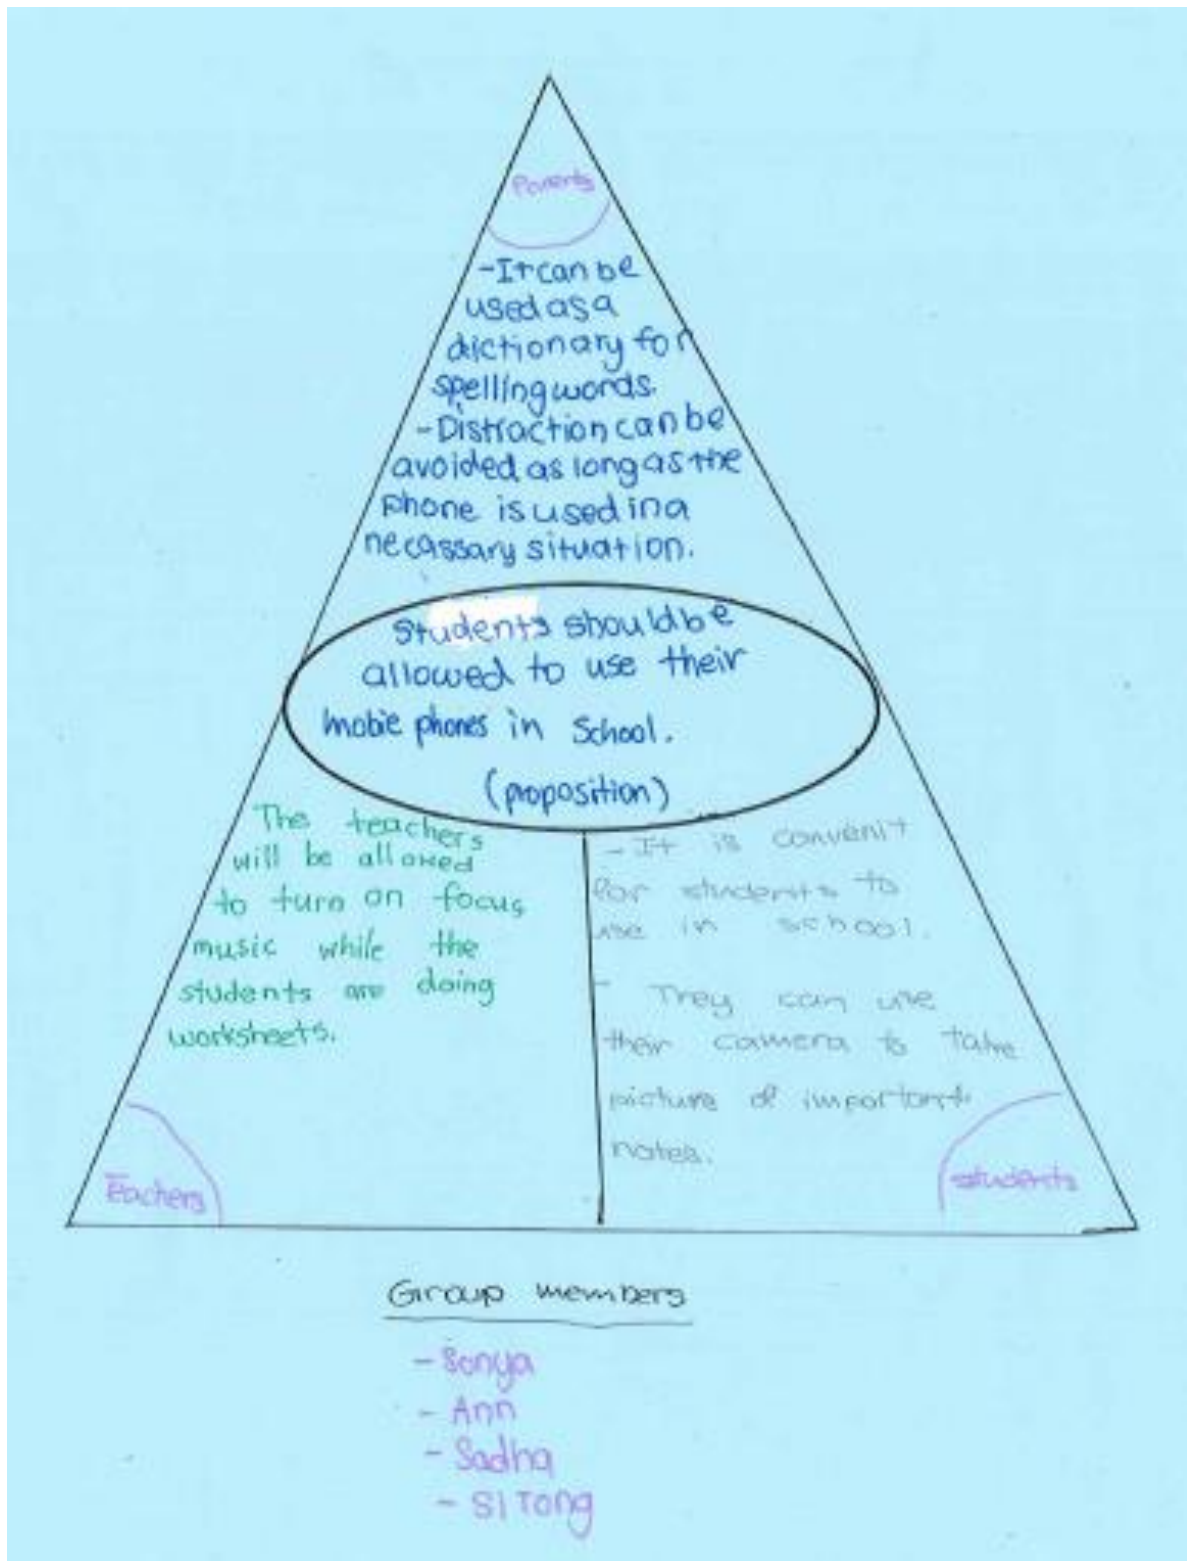 Parents
-It can be
used as a
dictionary for
spelling words.
-Distraction can be
avoided as long as the
phone is used in a
necassary situation.
students should be
allowed to use their
mobie phones in School.
(proposition)
The teachers
will be allowed
to turn on focus
music while the
students are doing
worksheets.
Teachers
- It is convenit
for students to
use in school.
- They can use
their camera to take
picture of important
notes.
students
Group members
- Sonya
- Ann
- Sadha
- Si Tong